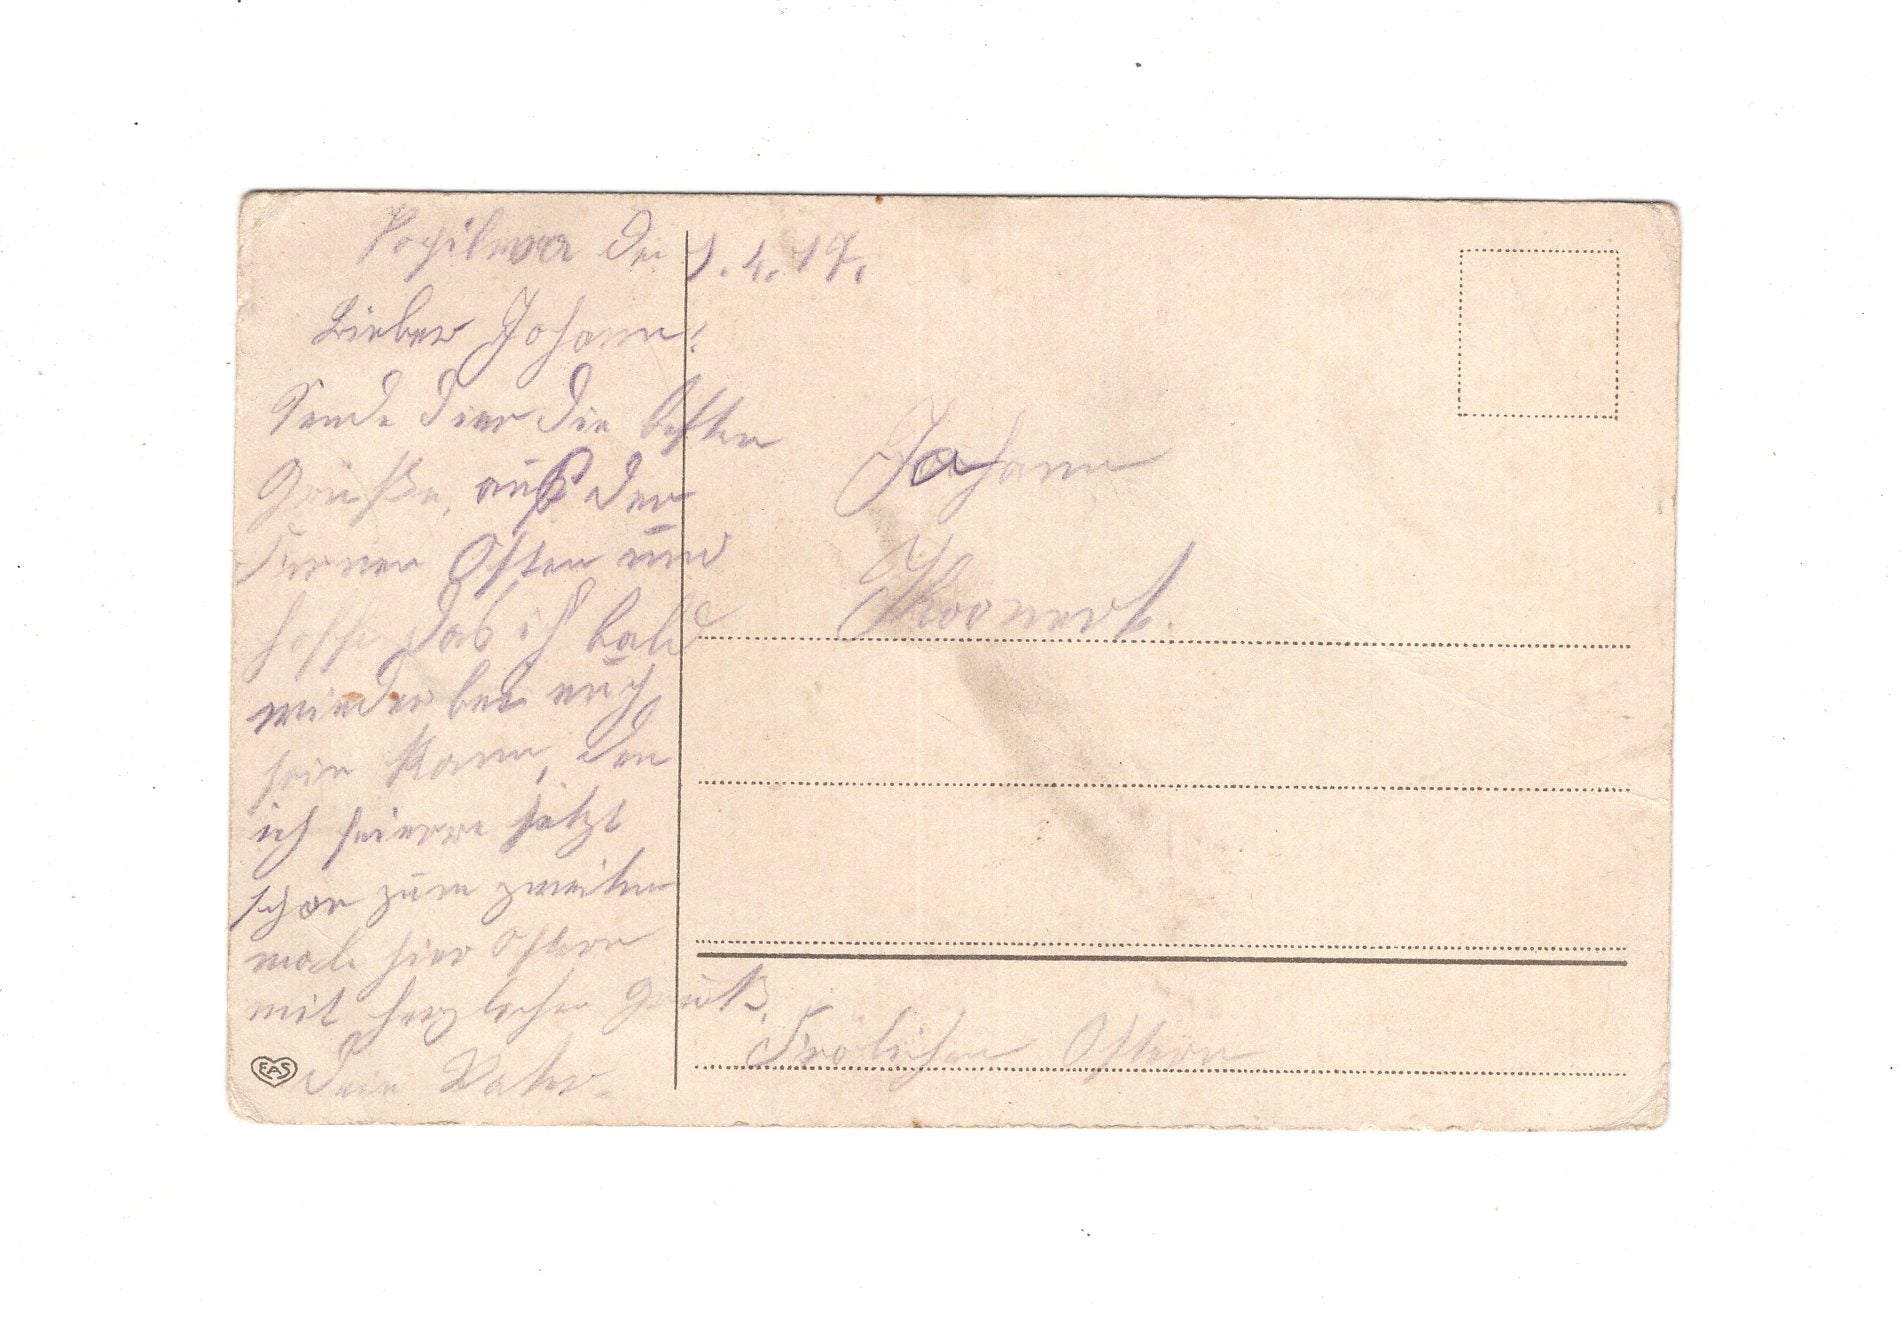 den 1.4.17.
Lieber Johann!
Sende dier die besten
Grüße, auß der
fernen Osten und
hoffe das ich bald
wieder bei euch
sein kann, den
ich feierre jetzt
schon zum zweiten
mal hier Ostern
mit herzlichen Gruß
Dein Vater.
EAS
Johann
Frölichen Ostern